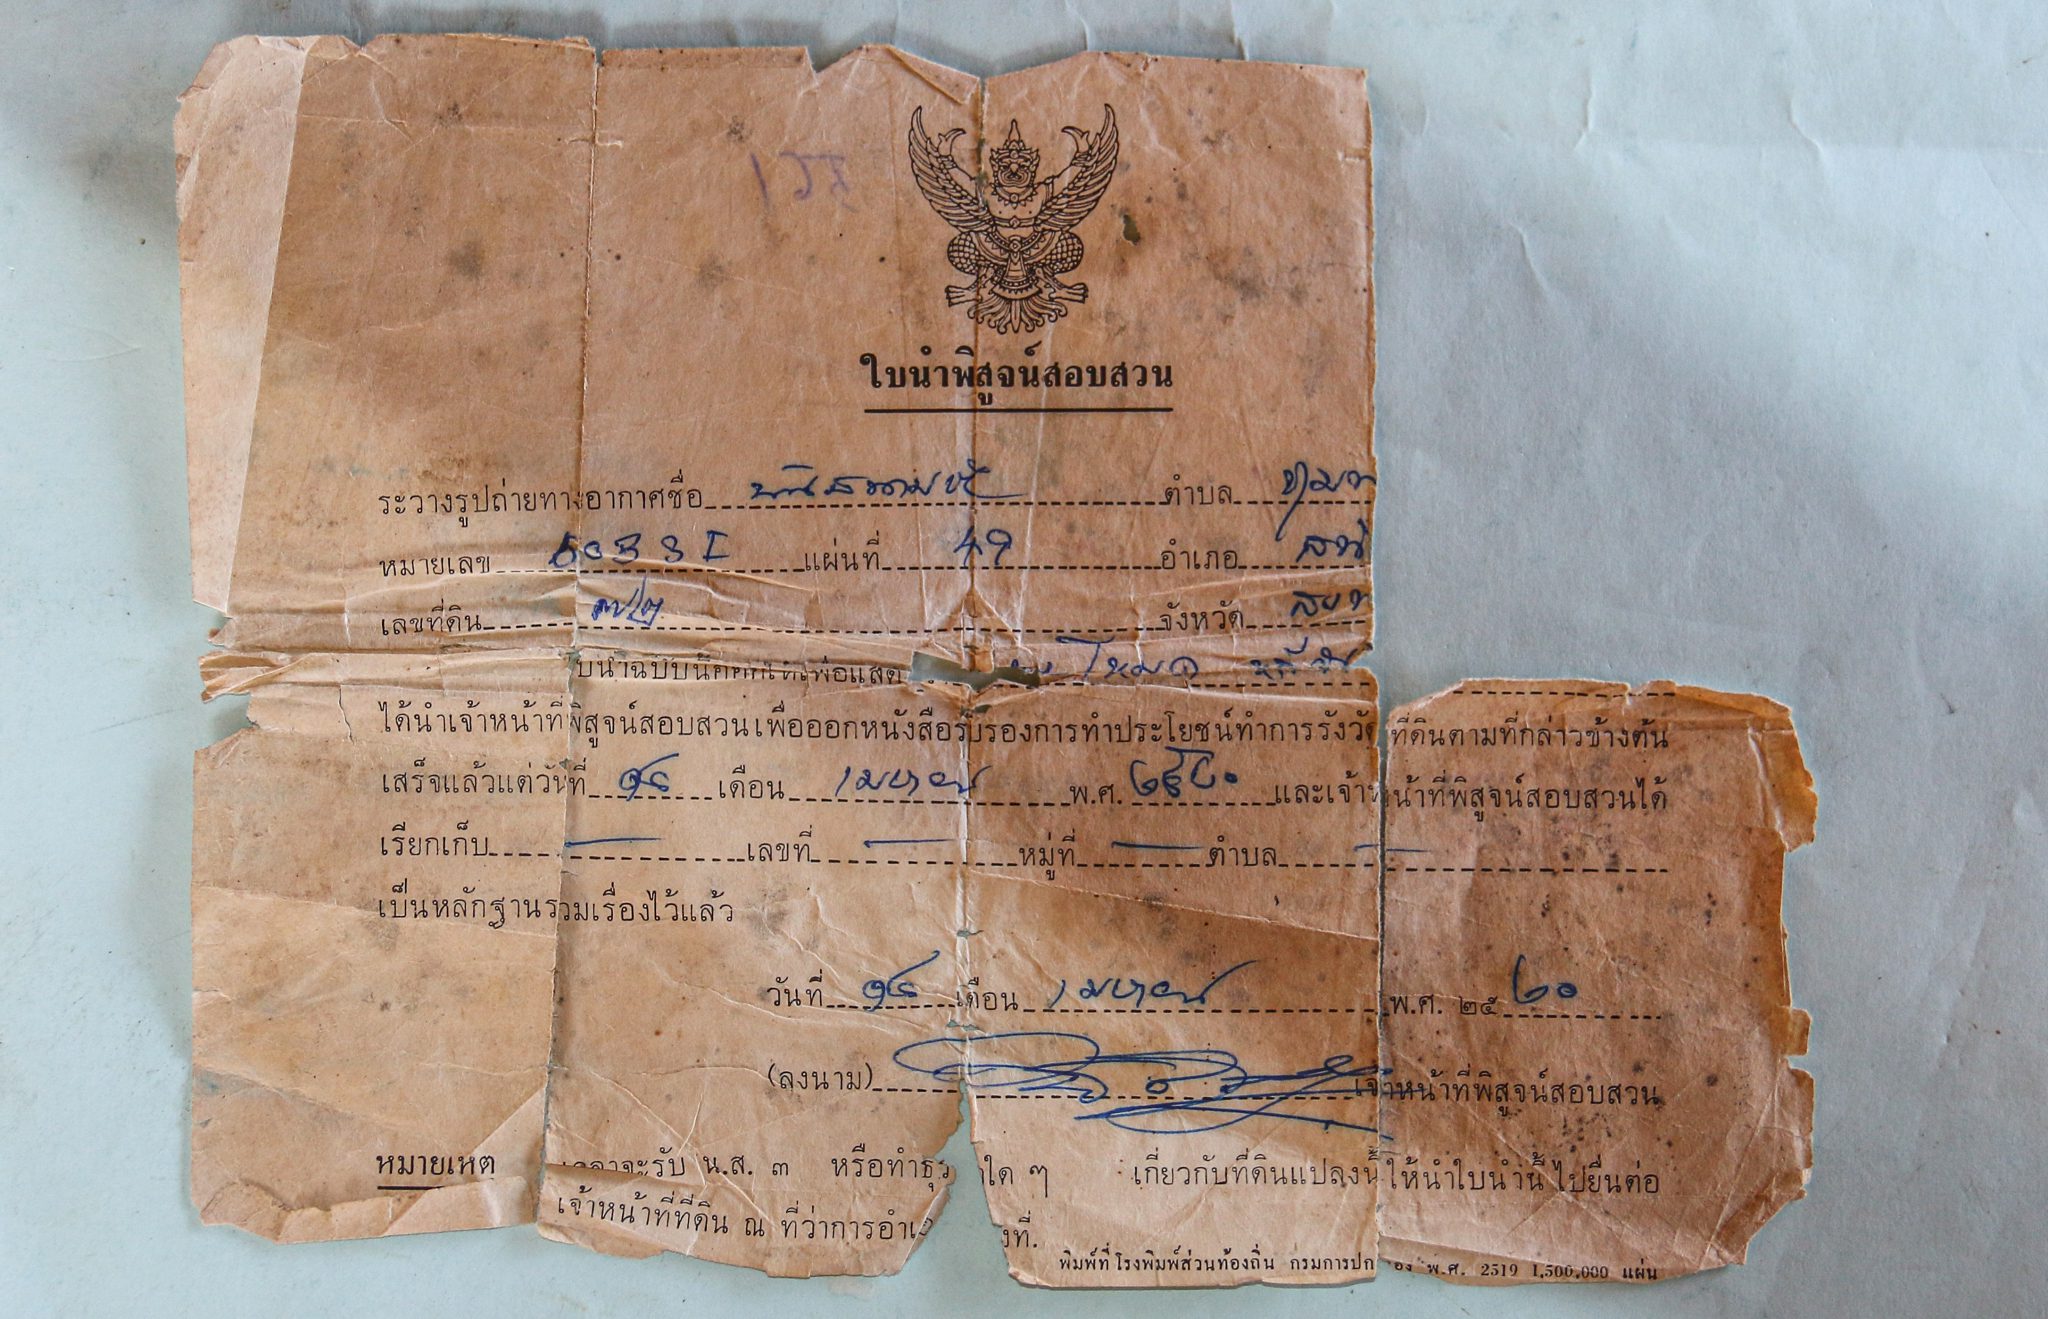 ใบนำพิสูจน์สอบสวน
ระวางรูปถ่ายทางอากาศชื่อ ตำบล
หมายเลข 5033 I แผ่นที่ 49 อำเภอ
เลขที่ดิน จังหวัด
ใบนำฉบับนี้ โหมด
ได้นำเจ้าหน้าที่พิสูจน์สอบสวนเพื่อออกหนังสือรับรองการทำประโยชน์ทำการรังวัดที่ดินตามที่กล่าวข้างต้น
เสร็จแล้วแต่วันที่ ๑๔ เดือน เมษายน พ.ศ. ๒๕๒๐ และเจ้าหน้าที่พิสูจน์สอบสวนได้
เรียกเก็บ — เลขที่ — หมู่ที่ — ตำบล —
เป็นหลักฐานรวมเรื่องไว้แล้ว
วันที่ ๑๔ เดือน เมษายน พ.ศ. ๒๕ ๒๐
(ลงนาม) เจ้าหน้าที่พิสูจน์สอบสวน
หมายเหตุ จะรับ น.ส. ๓ หรือทำธุร ใด ๆ เกี่ยวกับที่ดินแปลงนี้ให้นำใบนำนี้ไปยื่นต่อ
เจ้าหน้าที่ที่ดิน ณ ที่ว่าการอำเ
พิมพ์ที่โรงพิมพ์ส่วนท้องถิ่น กรมการปกครอง พ.ศ. 2519 1,500,000 แผ่น